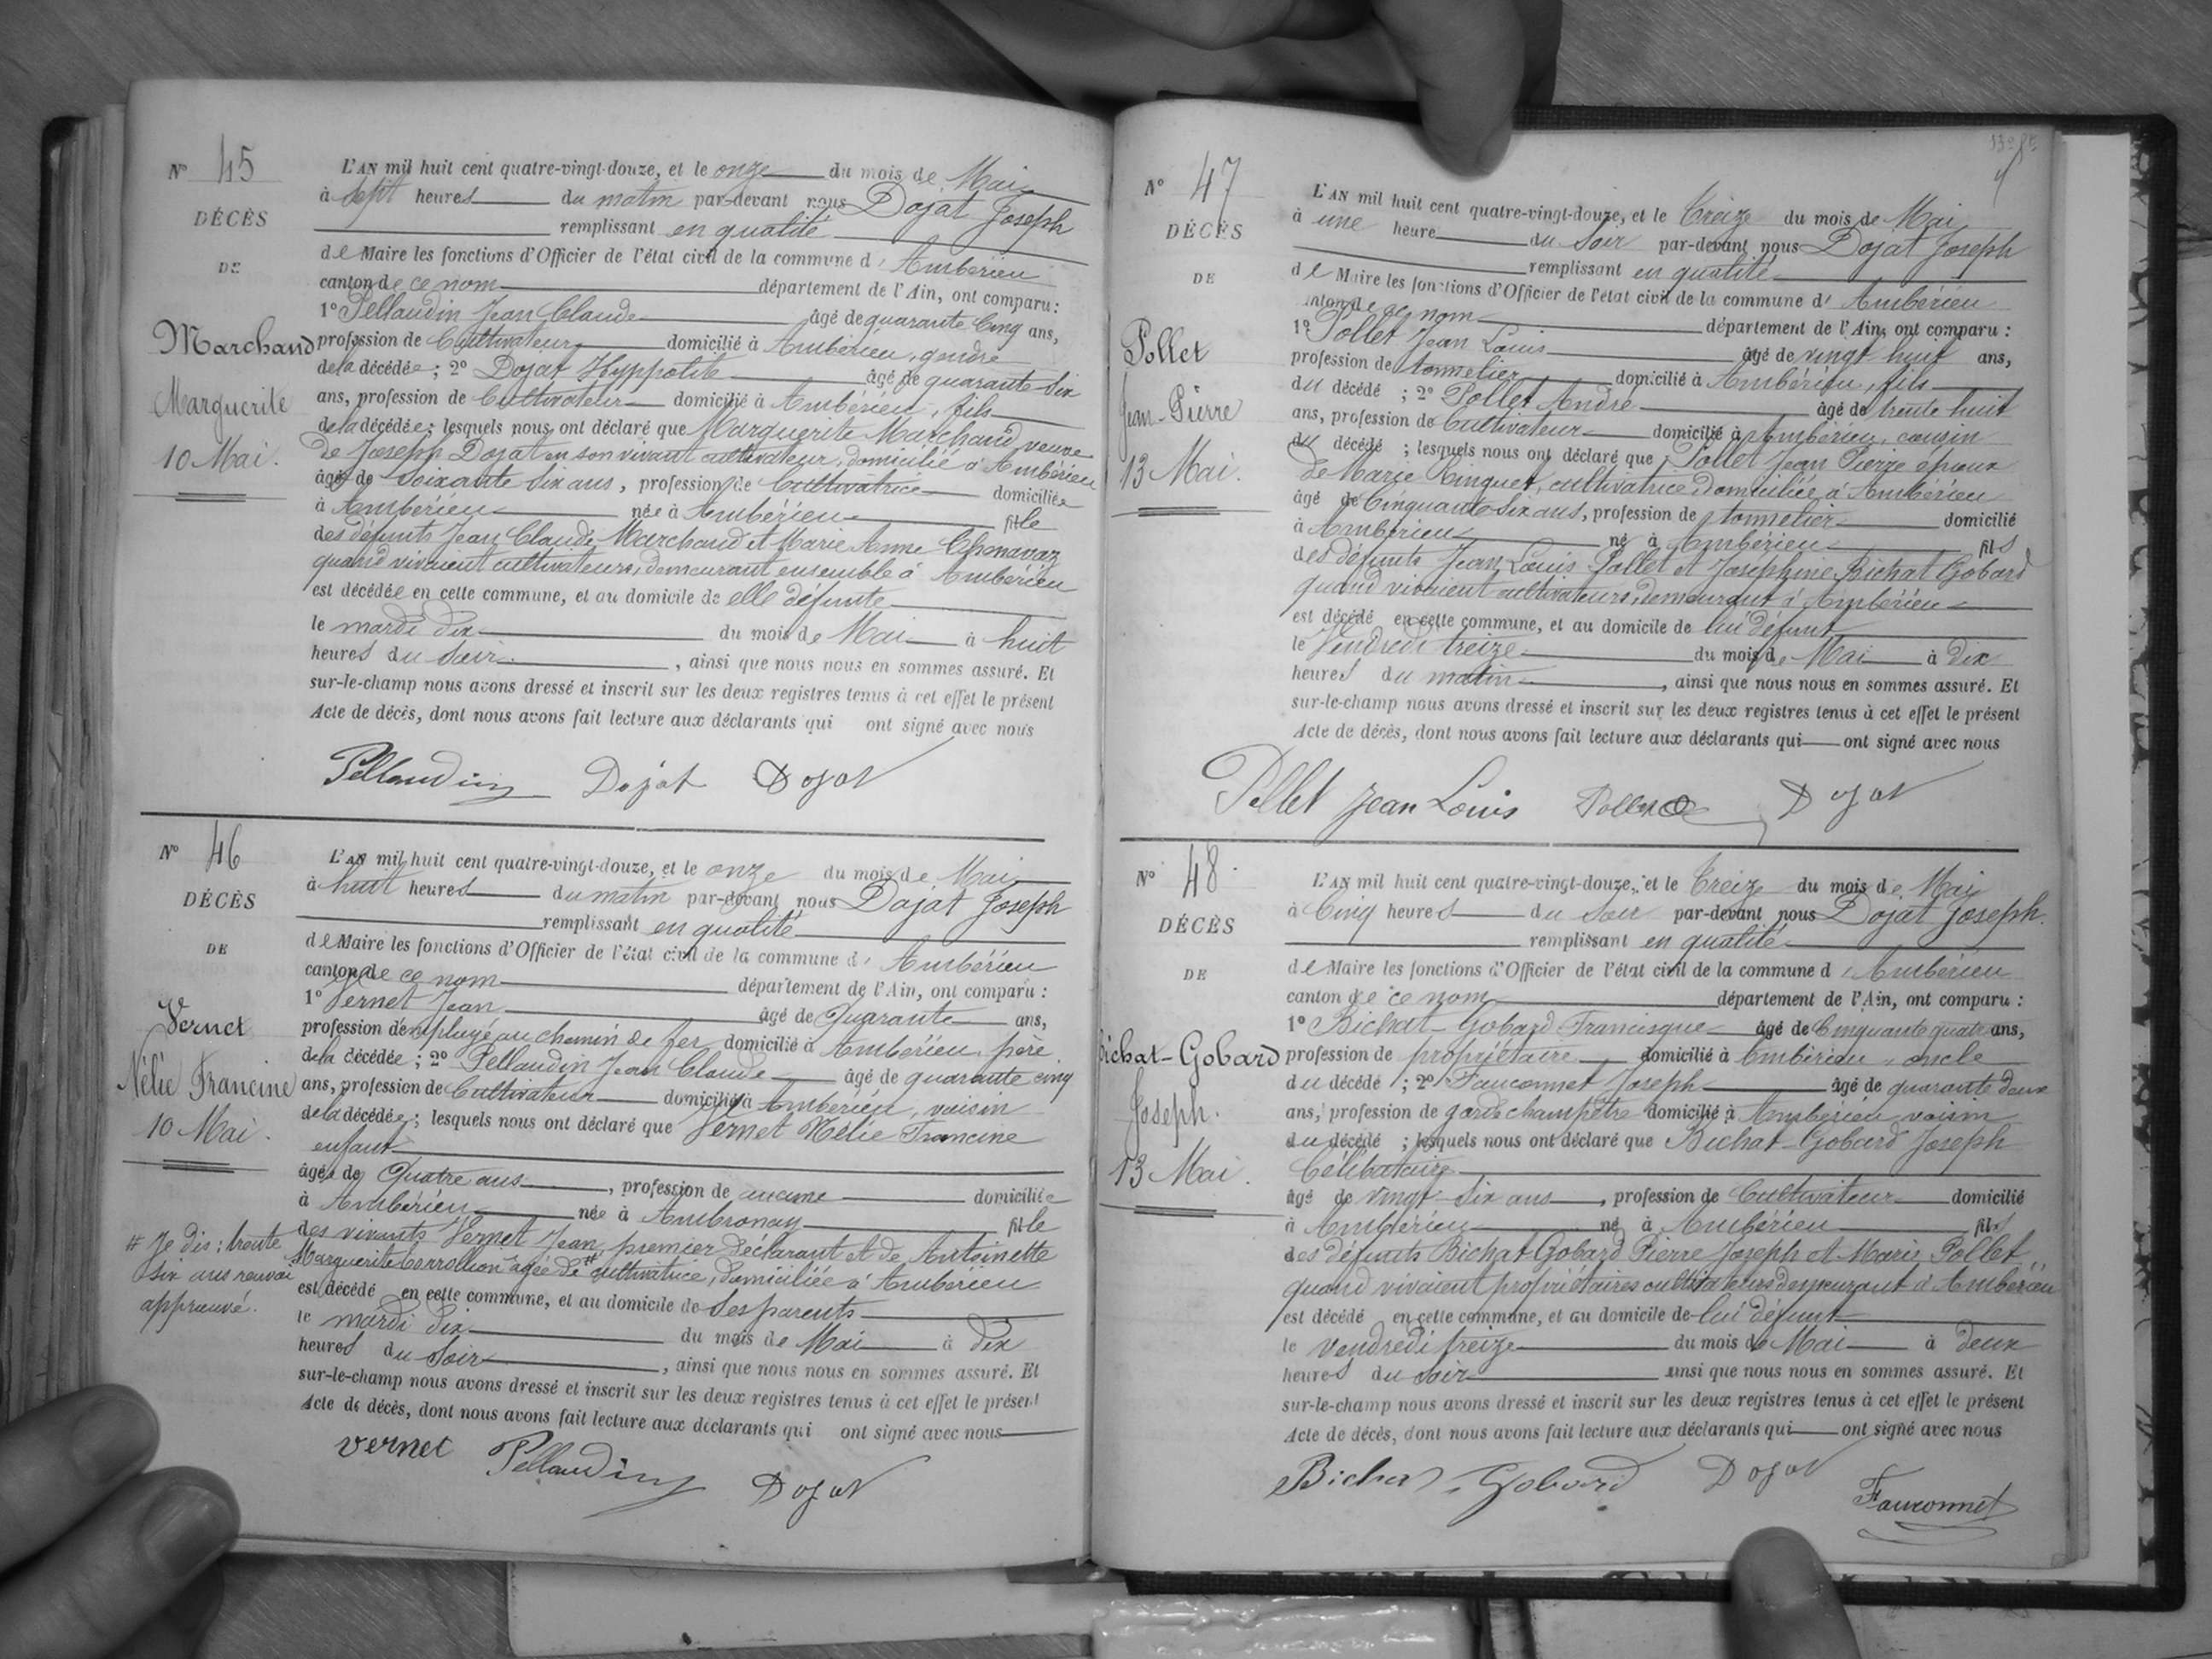 N° 45
DÉCÈS
DE
Marchand
Marguerite
10 Mai.
L'AN mil huit cent quatre-vingt-douze, et le onze du mois de Mai
à sept heures du matin par-devant nous Dojat Joseph
remplissant en qualité
de Maire les fonctions d'Officier de l'état civil de la commune d' Ambérieu
canton de ce nom département de l'Ain, ont comparu :
1° Pellaudin Jean Claude âgé de quarante Cinq ans,
profession de Cultivateur domicilié à Ambérieu, gendre
de la décédée ; 2° Dojat Hyppolite âgé de quarante six
ans, profession de Cultivateur domicilié à Ambérieu, fils
de la décédée ; lesquels nous ont déclaré que Marguerite Marchand veuve
de Joseph Dojat en son vivant cultivateur, domicilié à Ambérieu
âgée de soixante six ans, profession de Cultivatrice domiciliée
à Ambérieu née à Ambérieu fille
des défunts Jean Claude Marchand et Marie Anne
quand vivaient cultivateurs, demeurant ensemble à Ambérieu
est décédée en cette commune, et au domicile de elle défunte
le mardi dix du mois de Mai à huit
heures du soir, ainsi que nous nous en sommes assuré. Et
sur-le-champ nous avons dressé et inscrit sur les deux registres tenus à cet effet le présent
Acte de décès, dont nous avons fait lecture aux déclarants qui ont signé avec nous
Pellaudin Dojat Dojat
N° 46
DÉCÈS
DE
Vernet
Nélie Francine
10 Mai.
# Je dis : trente
six ans renvoi
approuvé.
L'AN mil huit cent quatre-vingt-douze, et le onze du mois de Mai
à huit heures du matin par-devant nous Dojat Joseph
remplissant en qualité
de Maire les fonctions d'Officier de l'état civil de la commune d' Ambérieu
canton de ce nom département de l'Ain, ont comparu :
1° Vernet Jean âgé de Quarante ans,
profession d'employé au chemin de fer domicilié à Ambérieu, père
de la décédée ; 2° Pellaudin Jean Claude âgé de quarante cinq
ans, profession de Cultivateur domicilié à Ambérieu, voisin
de la décédée ; lesquels nous ont déclaré que Vernet Nélie Francine
enfant
âgée de Quatre ans, profession de aucune domiciliée
à Ambérieu née à Ambronay fille
des vivants Vernet Jean, premier déclarant et de Antoinette
Marguerite âgée de # cultivatrice, domiciliée à Ambérieu
est décédé en cette commune, et au domicile de ses parents
le mardi dix du mois de Mai à dix
heures du soir, ainsi que nous nous en sommes assuré. Et
sur-le-champ nous avons dressé et inscrit sur les deux registres tenus à cet effet le présent
Acte de décès, dont nous avons fait lecture aux déclarants qui ont signé avec nous
Vernet Pellaudin Dojat
N° 47
DÉCÈS
DE
Pollet
Jean-Pierre
13 Mai.
L'AN mil huit cent quatre-vingt-douze, et le Treize du mois de Mai
à une heure du Soir par-devant nous Dojat Joseph
remplissant en qualité
de Maire les fonctions d'Officier de l'état civil de la commune d' Ambérieu
canton de ce nom département de l'Ain, ont comparu :
1° Pollet Jean Louis âgé de vingt huit ans,
profession de tonnelier domicilié à Ambérieu, fils
du décédé ; 2° Pollet André âgé de trente huit
ans, profession de Cultivateur domicilié à Ambérieu, cousin
du décédé ; lesquels nous ont déclaré que Pollet Jean Pierre époux
de Marie Ringuet, cultivatrice, domiciliée à Ambérieu
âgé de Cinquante-six ans, profession de tonnelier domicilié
à Ambérieu né à Ambérieu fils
des défunts Jean Louis Pollet et Josephine Bichat Gobard
quand vivaient cultivateurs, demeurant à Ambérieu
est décédé en cette commune, et au domicile de lui défunt
le Vendredi treize du mois de Mai à dix
heures du matin, ainsi que nous nous en sommes assuré. Et
sur-le-champ nous avons dressé et inscrit sur les deux registres tenus à cet effet le présent
Acte de décès, dont nous avons fait lecture aux déclarants qui ont signé avec nous
Pollet Jean Louis Pollet Dojat
N° 48.
DÉCÈS
DE
Bichat-Gobard
Joseph.
13 Mai.
L'AN mil huit cent quatre-vingt-douze, et le Treize du mois de Mai
à Cinq heures du Soir par-devant nous Dojat Joseph.
remplissant en qualité
de Maire les fonctions d'Officier de l'état civil de la commune d' Ambérieu
canton de ce nom département de l'Ain, ont comparu :
1° Bichat-Gobard Francisque âgé de Cinquante quatre ans,
profession de propriétaire domicilié à Ambérieu, oncle
du décédé ; 2° Fauconnet Joseph âgé de quarante deux
ans, profession de garde champêtre domicilié à Ambérieu voisin
du décédé ; lesquels nous ont déclaré que Bichat-Gobard Joseph
Célibataire
âgé de vingt-six ans, profession de Cultivateur domicilié
à Ambérieu né à Ambérieu fils
des défunts Bichat Gobard Pierre Joseph et Marie Pollet
quand vivaient propriétaires cultivateurs demeurant à Ambérieu
est décédé en cette commune, et au domicile de lui défunt
le vendredi treize du mois de Mai à deux
heures du soir ainsi que nous nous en sommes assuré. Et
sur-le-champ nous avons dressé et inscrit sur les deux registres tenus à cet effet le présent
Acte de décès, dont nous avons fait lecture aux déclarants qui ont signé avec nous
Bichat-Gobard Dojat Fauconnet